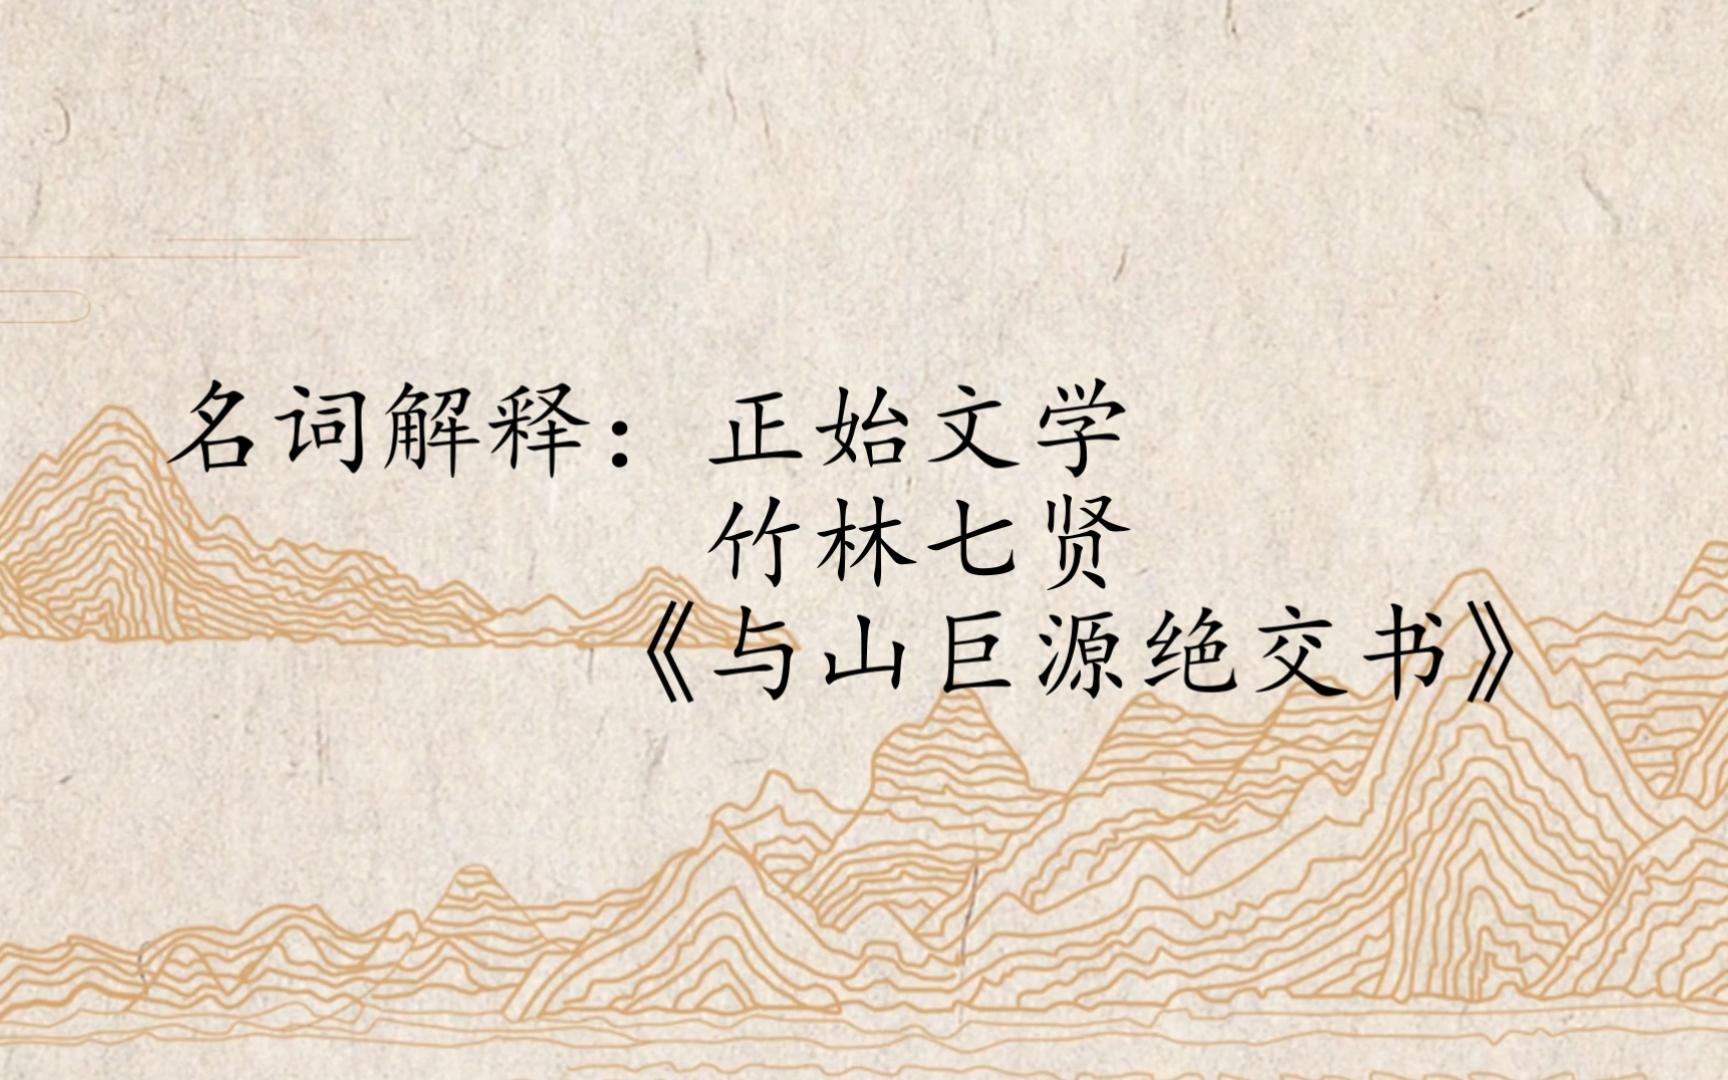 名词解释：正始文学
竹林七贤
《与山巨源绝交书》